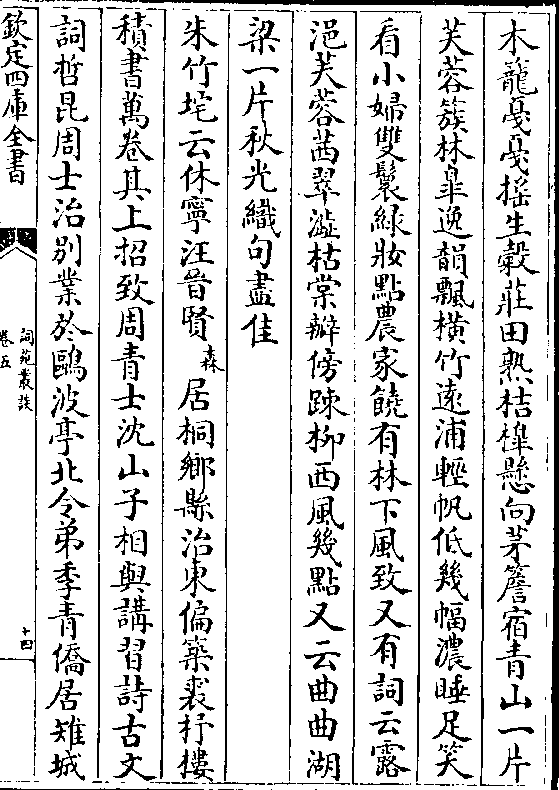 木籠戞戞揺生穀莊田熟桔橰懸向茅簷宿青山一片
芙蓉簇林臯逸韻飄橫竹遠浦輕帆低幾幅濃睡足笑
看小婦雙鬟綠妝點農家饒有林下風致又有詞云露
浥芙蓉茜翠澁枯棠瓣傍踈柳西風幾點又云曲曲湖
梁一片秋光織句盡佳
朱竹垞云休寧汪晉賢森居桐鄉縣治東偏築裘杼樓
積書萬卷其上招致周青士沈山子相與講習詩古文
詞哲昆周士治別業於鷗波亭北令弟季青僑居雉城
欽定四庫全書
詞苑叢談
卷五
十四